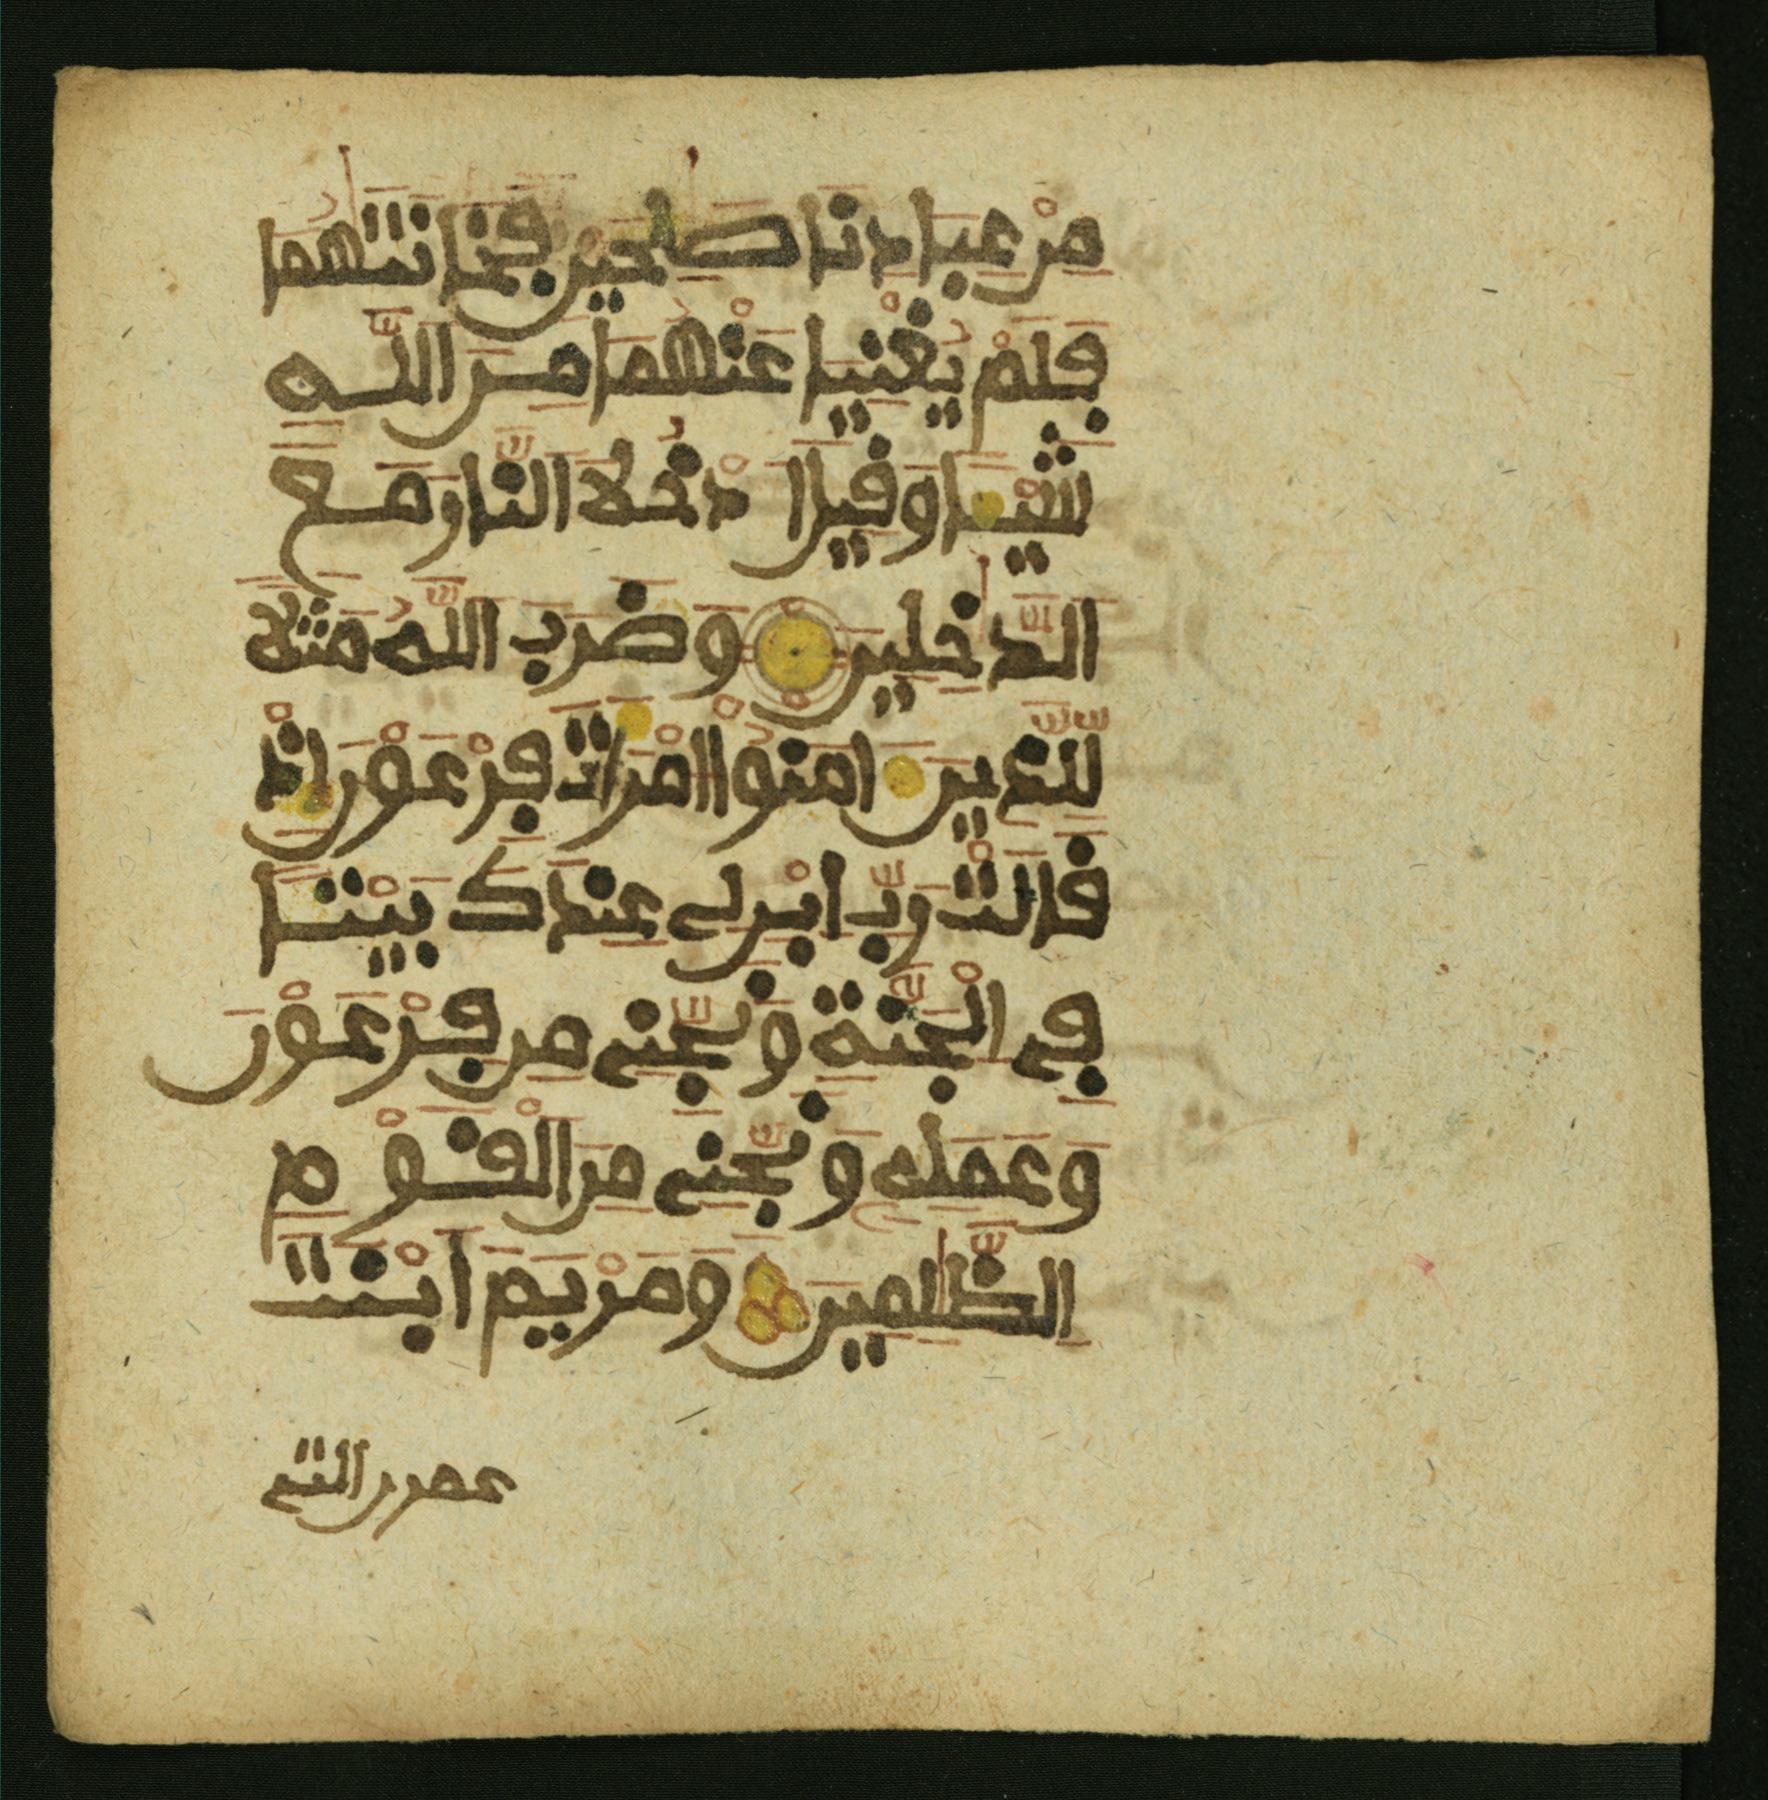 مِنْ عِبَادِنَا صَٰلِحَيْنِ فَخَانَتَٰهُمَا
فَلَمْ يُغْنِيَا عَنْهُمَا مِنَ اللَّهِ
شَيْـًٔا وَقِيلَ ادْخُلَا النَّارَ مَعَ
الدَّٰخِلِينَ وَضَرَبَ اللَّهُ مَثَلًا
لِّلَّذِينَ ءَامَنُوا امْرَأَتَ فِرْعَوْنَ إِذْ
قَالَتْ رَبِّ ابْنِ لِي عِندَكَ بَيْتًا
فِي الْجَنَّةِ وَنَجِّنِي مِن فِرْعَوْنَ
وَعَمَلِهِ وَنَجِّنِي مِنَ الْقَوْمِ
الظَّٰلِمِينَ وَمَرْيَمَ ابْنَتَ
عمرن التي